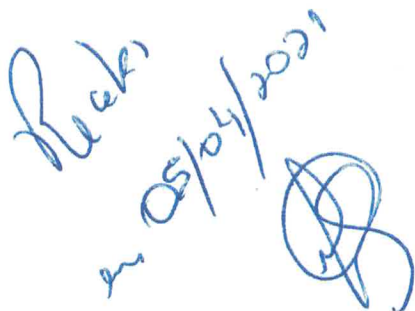 Recebi
em 05/04/2021